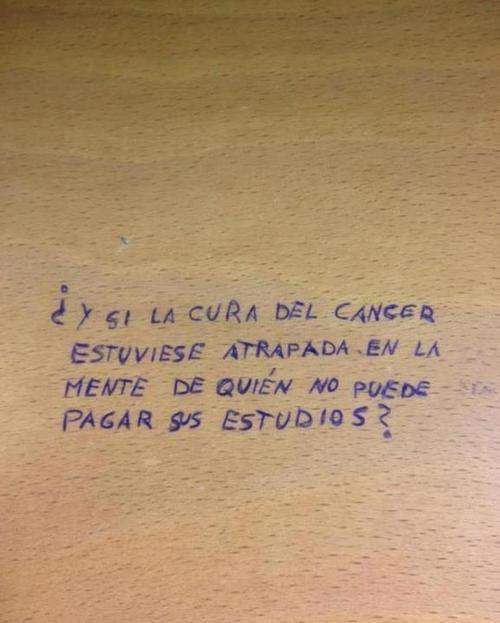 ¿Y SI LA CURA DEL CANCER
ESTUVIESE ATRAPADA EN LA
MENTE DE QUIÉN NO PUEDE
PAGAR SUS ESTUDIOS?